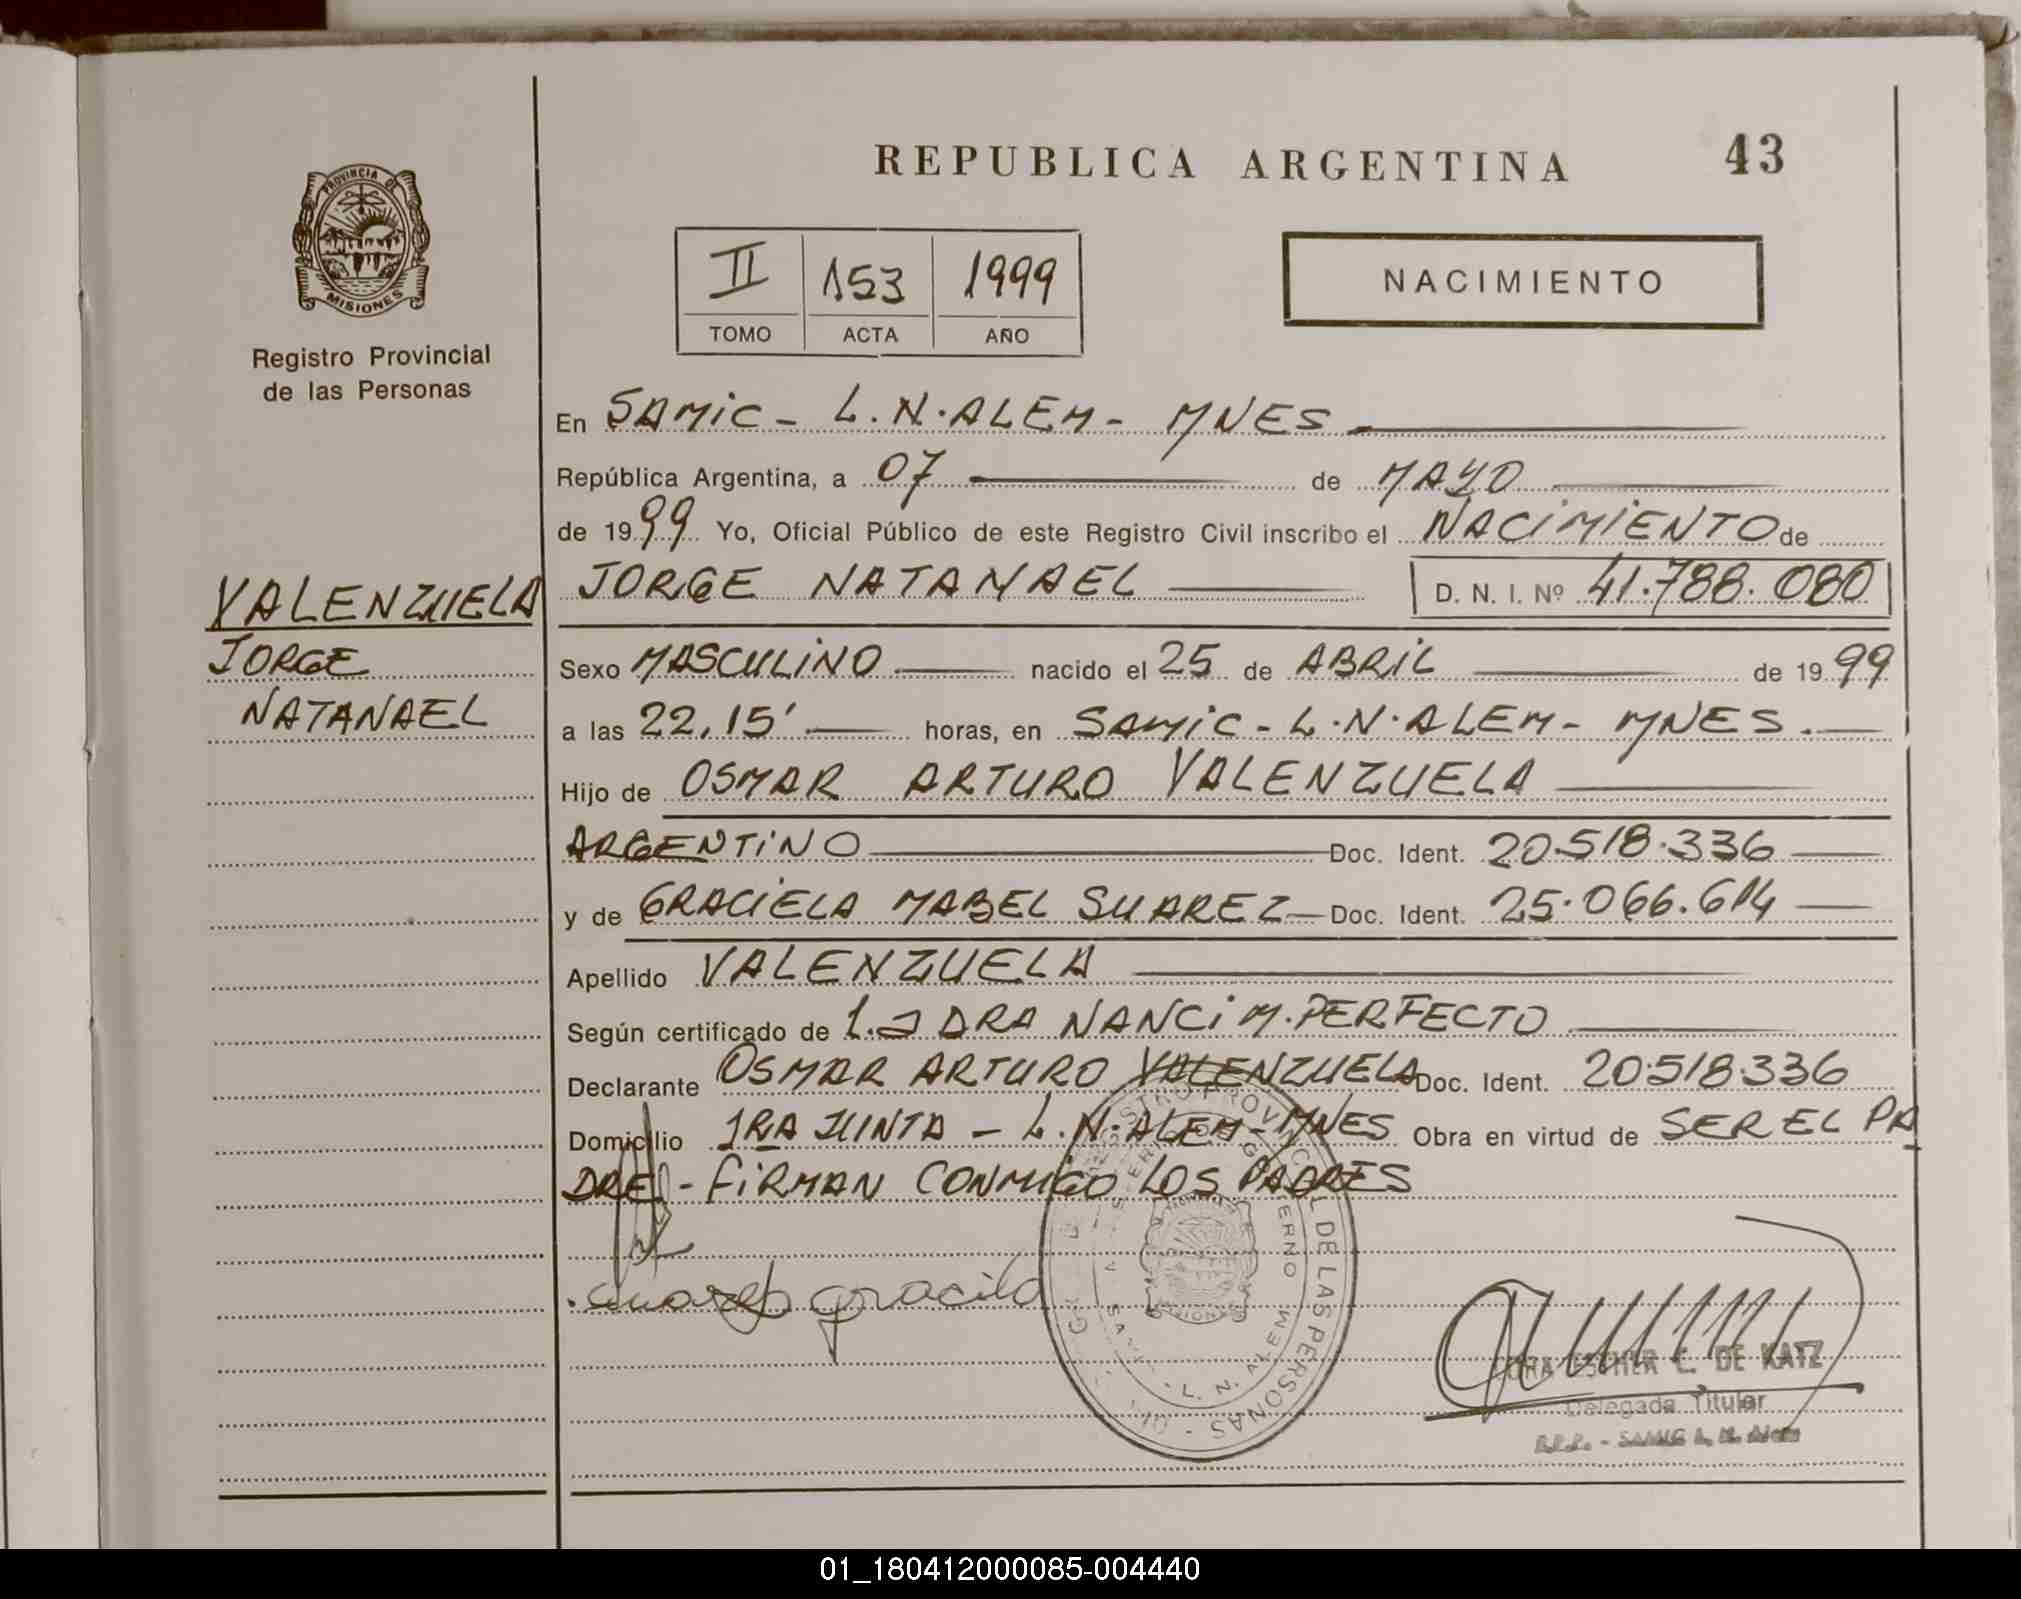 REPUBLICA ARGENTINA 43
PROVINCIA DE
MISIONES
Registro Provincial
de las Personas
II 153 1999
TOMO ACTA AÑO
NACIMIENTO
En SAMIC - L.N. ALEM - MNES
República Argentina, a 07 de MAYO
de 1999 Yo, Oficial Público de este Registro Civil inscribo el NACIMIENTO de
VALENZUELA
JORGE
NATANAEL
JORGE NATANAEL D. N. I. Nº 41.788.080
Sexo MASCULINO nacido el 25 de ABRIL de 1999
a las 22,15' horas, en SAMIC - L.N. ALEM - MNES.
Hijo de OSMAR ARTURO VALENZUELA
ARGENTINO Doc. Ident. 20.518.336
y de GRACIELA MABEL SUAREZ Doc. Ident. 25.066.614
Apellido VALENZUELA
Según certificado de DRA NANCI M. PERFECTO
Declarante OSMAR ARTURO VALENZUELA Doc. Ident. 20.518.336
Domicilio 1RA JUNTA - L.N. ALEM - MNES Obra en virtud de SER EL PA
DRE - FIRMAN CONMIGO LOS PADRES
suarez graciela
DE LAS PERSONAS
L. N. ALEM
ESTHER C. DE KATZ
Delegada Titular
SAMIC L. N. Alem
01_180412000085-004440